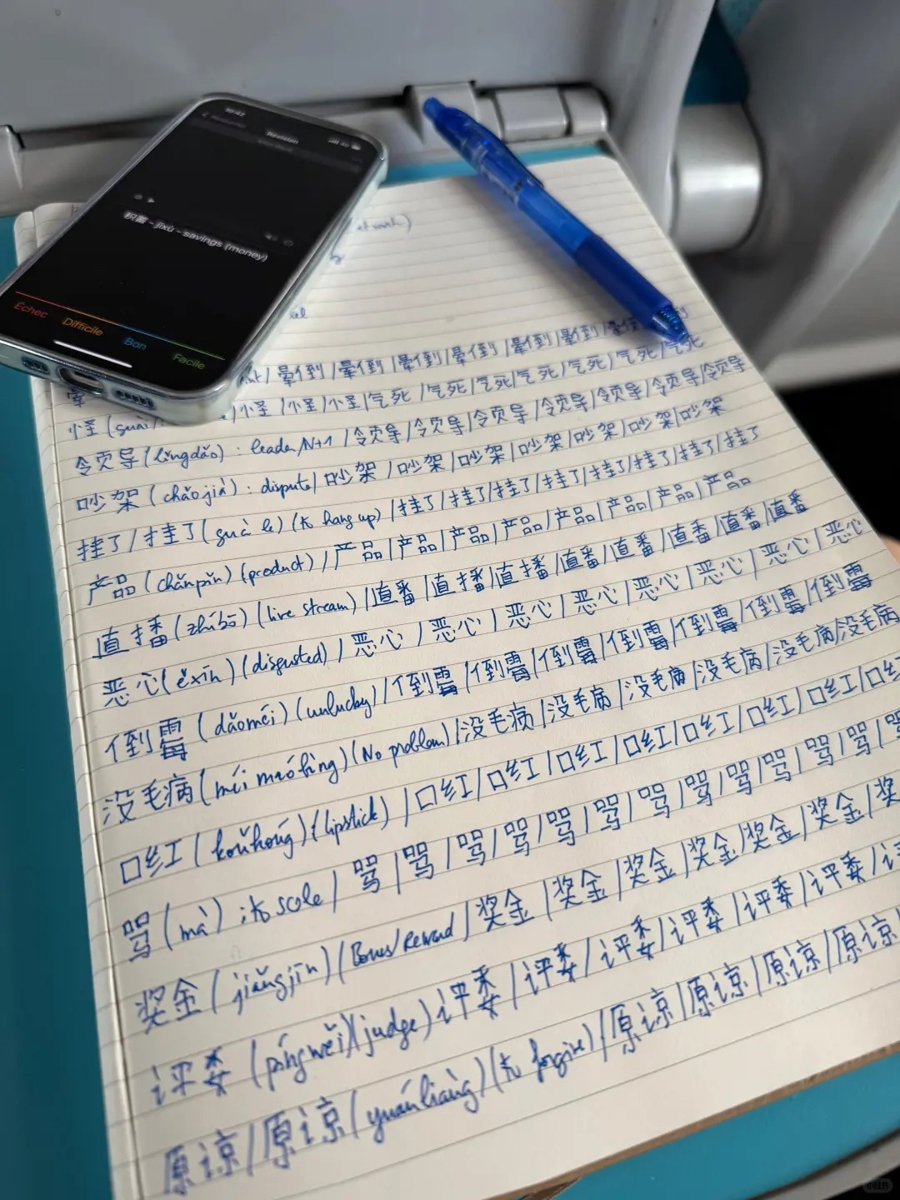 积蓄 - jīxù - savings (money)
Echec Difficile Bon Facile
晕倒/晕倒/晕倒/晕倒/晕倒/晕倒
怪 /怪/怪/怪/气死/气死/气死/气死/气死/气死/气死
领导(lǐngdǎo): leader/N+1/领导/领导/领导/领导/领导/领导/领导
吵架(chǎojià): dispute/吵架/吵架/吵架/吵架/吵架/吵架/吵架
挂了/挂了(guà le)(to hang up)/挂了/挂了/挂了/挂了/挂了/挂了/挂了
产品(chǎnpǐn)(product)/产品/产品/产品/产品/产品/产品/产品
直播(zhíbō)(live stream)/直播/直播/直播/直番/直番/直番/直番/直番
恶心(ěxīn)(disgusted)/恶心/恶心/恶心/恶心/恶心/恶心/恶心/恶心
倒霉(dǎoméi)(unlucky)/倒霉/倒霉/倒霉/倒霉/倒霉/倒霉/倒霉
没毛病(méi máobìng)(No problem)/没毛病/没毛病/没毛病/没毛病/没毛病/没毛病
口红(kǒuhóng)(lipstick)/口红/口红/口红/口红/口红/口红/口红
骂(mà): to scole/骂/骂/骂/骂/骂/骂/骂/骂/骂/骂/骂
奖金(jiǎngjīn)(Bonus/Reward/奖金/奖金/奖金/奖金/奖金/奖金/奖
评委(píngwěi)(judge)评委/评委/评委/评委/评委/评委
原谅/原谅(yuánliàng)(to forgive)/原谅/原谅/原谅/原谅